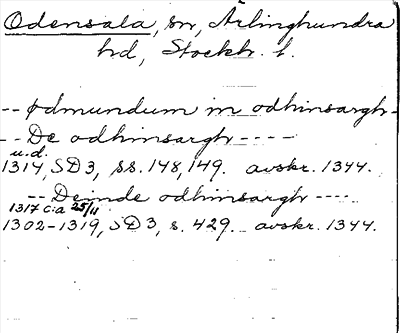 Odensala, sn, Ärlinghundra
hd, Stockh. l.
-- ødmundum in odhinsargh-
-- De odhinsargh ----
u.d.
1314, SD3, ss. 148, 149. avskr. 1344.
-- Deinde odhinsargh ----
1317 c:a 25/11
1302-1319, SD3, s. 429. avskr. 1344.